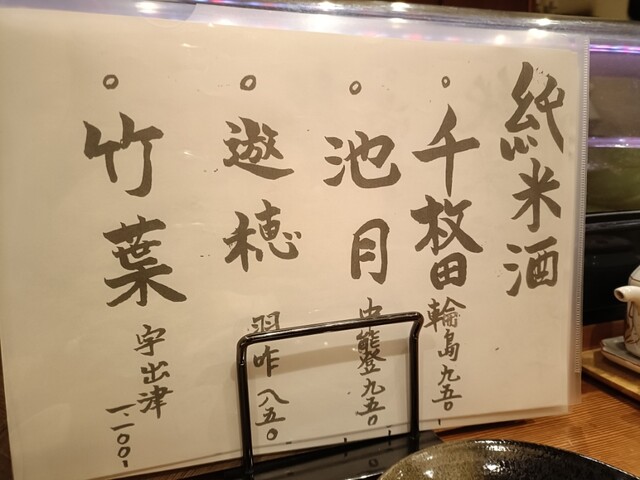 純米酒
○千枚田 輪島 九五〇
○池月 中能登 九五〇
○遊穂 羽咋 八五〇
○竹葉 宇出津 一、一〇〇